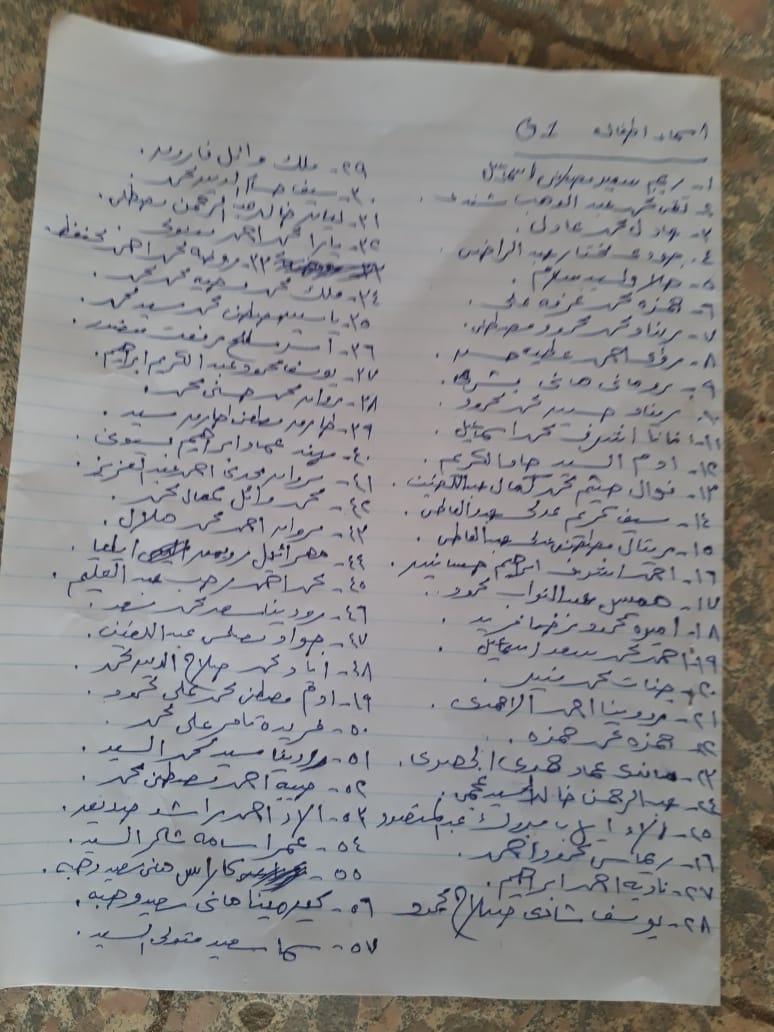 اسماء اطفال G.1
١- ريم سعيد مصطفى اسماعيل
٢- تقى محمد عبد الوهاب شندى.
٣- عادل محمد عادل.
٤- جودى مختار عبد الراضى.
٥- وليد سلام.
٦- حمزه محمد عرفه على.
٧- ريناد محمد محمود مصطفى.
٨- احمد عطيه حسن.
٩- رومانى هانى بشرى.
١٠- ريناد حسين محمد محمود.
١١- اشرف محمد اسماعيل.
١٢- ادم السيد
١٣- نوال هيثم محمد كمال عبد اللطيف.
١٤- سيف كريم عدلى عبد العاطى.
١٥- ريتال مصطفى على عبد العاطى.
١٦- احمد اشرف ابراهيم حسانين.
١٧- همس عبد التواب محمود.
١٨- اميره محمود رضا فريد.
١٩- احمد محمد سعد اسماعيل.
٢٠- جنات محمد منير.
٢١- رودينا احمد الاحمدى.
٢٢- حمزه عمر حمزه.
٢٣- ساندى عماد حمدى
٢٤- عبد الرحمن خالد السيد
٢٥- مبروك عبد المقصود
٢٦- ريماس محمود احمد.
٢٧- ناديه احمد ابراهيم.
٢٨- يوسف شاذى صلاح محمود
٢٩- ملك وائل فاروق.
٣٠- سيف حسام الدين محمد.
٣١- ليان خالد عبد الرحمن مصطفى.
٣٢- يارا محمد احمد
٣٣- محمد احمد محفوظ.
٣٤- ملك محمد وجيه محمد.
٣٥- ياسين مصطفى محمد سيد محمد.
٣٦- آسر رفعت
٣٧- يوسف محمود عبد الكريم ابراهيم.
٣٨- مروان محمد حسنى محمد.
٣٩- طارق مصطفى طارق سيد.
٤٠- مهند عماد ابراهيم بسيونى.
٤١- مروان مجدى احمد عبد العزيز.
٤٢- محمد وائل كمال محمد.
٤٣- مروان احمد محمد هلال.
٤٤- مهرائيل ايليا.
٤٥- محمد احمد رجب عبد العليم.
٤٦- رودينا سعد محمد سعد.
٤٧- جواد مصطفى عبد اللطيف.
٤٨- اياد محمد صلاح الدين محمد.
٤٩- ادهم مصطفى محمد على محمود.
٥٠- فريدة تامر على محمد.
٥١- رودينا سيد محمد السيد.
٥٢- حبيبه احمد مصطفى محمد.
٥٣- الاء احمد راشد
٥٤- عمر اسامه شاكر السيد.
٥٥- كاراس هانى سعيد وهبه.
٥٦- هانى سعيد وهبه.
٥٧- سما سعيد متولى السيد.